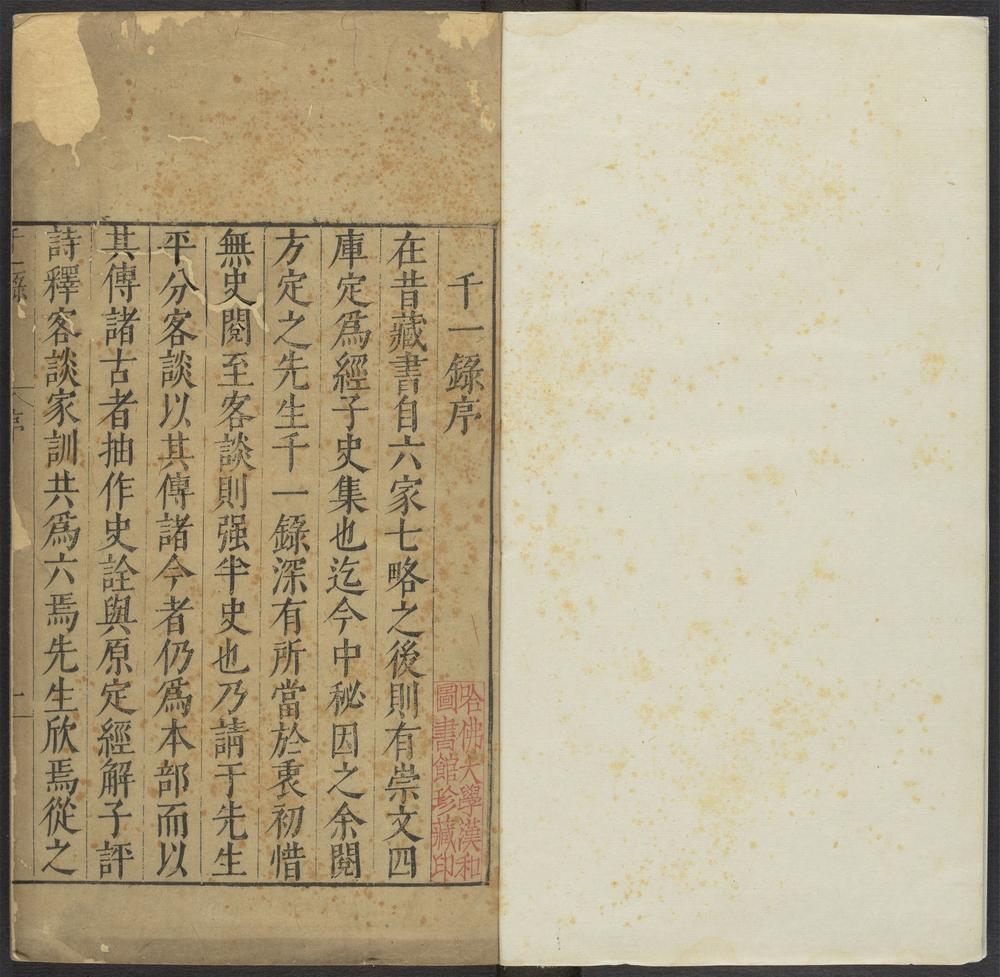 千一錄序
哈佛大學漢和
圖書館珍藏印
在昔藏書自六家七略之後則有崇文四
庫定爲經子史集也迄今中秘因之余閱
方定之先生千一錄深有所當於衷初惜
無史閱至客談則强半史也乃請于先生
平分客談以其傳諸今者仍爲本部而以
其傳諸古者抽作史詮與原定經解子評
詩釋客談家訓共爲六焉先生欣焉從之
千一錄 序 一